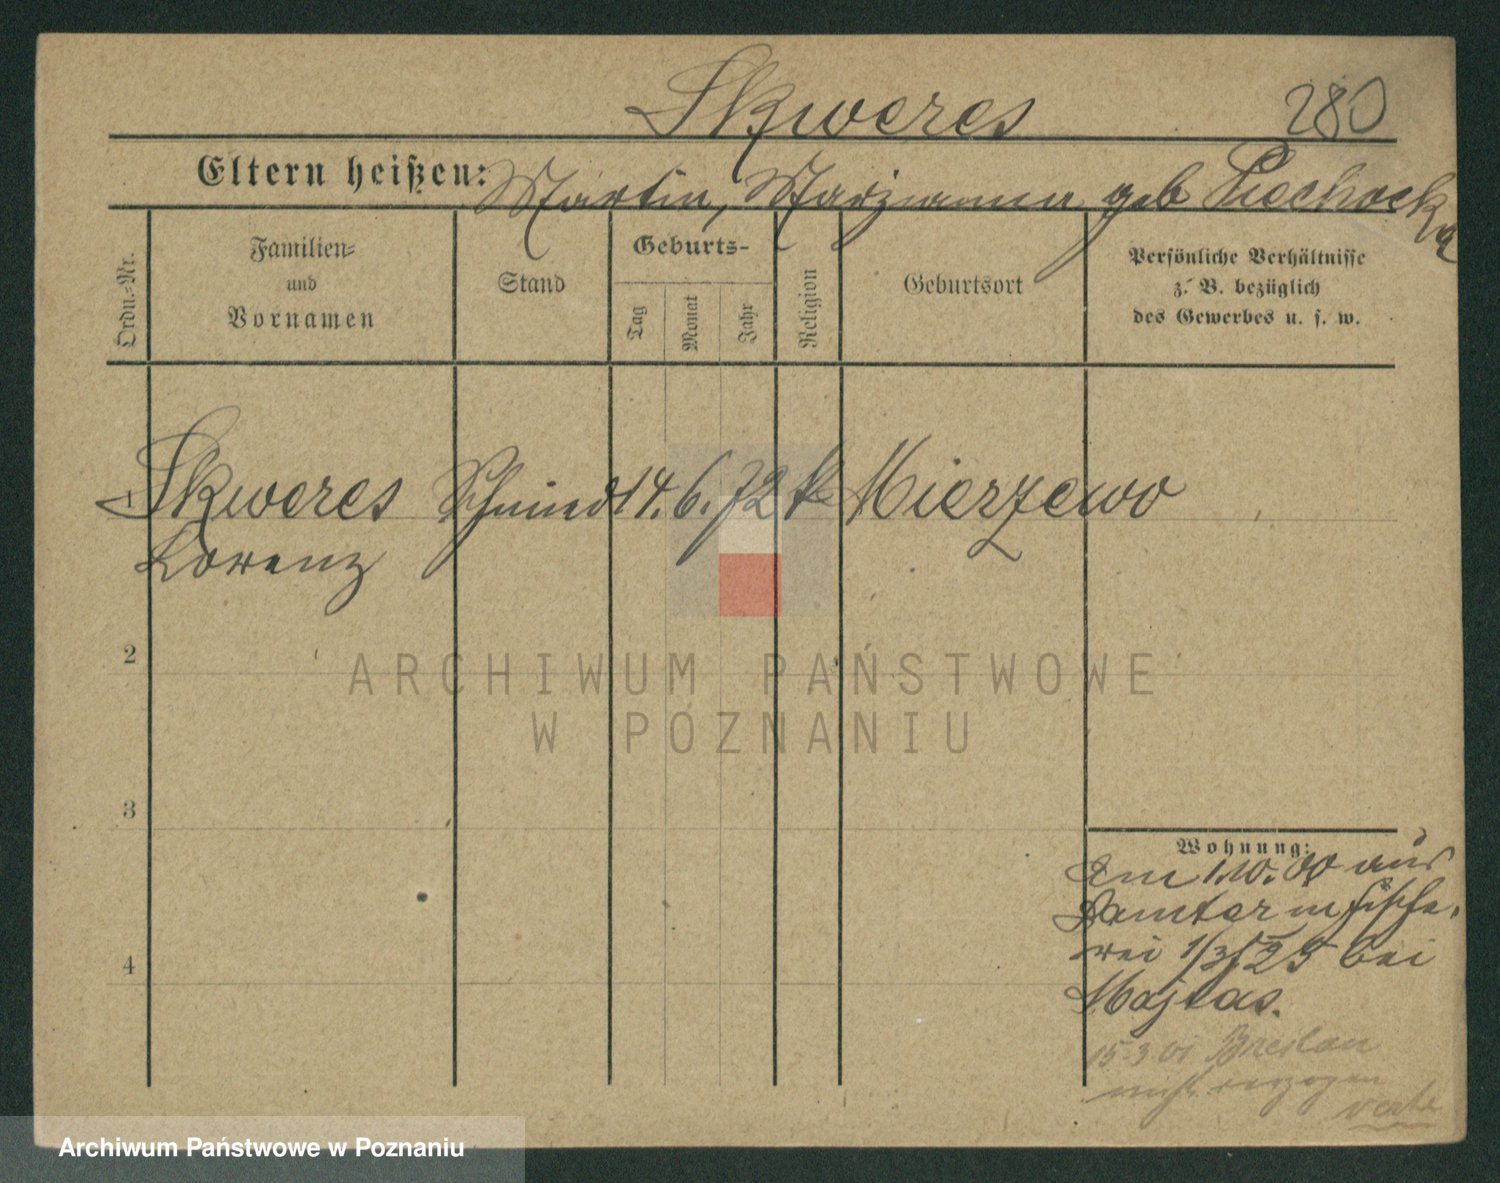 Skweres 280
Eltern heißen: Martin, Marianna geb Piechocka
Ordn.-Nr.
Familien-
und
Vornamen
Stand
Geburts-
Tag
Monat
Jahr
Religion
Geburtsort
Persönliche Verhältnisse
z. B. bezüglich
des Gewerbes u. s. w.
1 Skweres Schmied 14. 6. 72 k Mierzewo
Lorenz
2
3
4
Wohnung:
Am 1.10.00 aus
Samter in Fische-
rei 1/3 25 bei
Majtas.
15-3 01 Breslau
nicht verzogen
verte
ARCHIWUM PAŃSTWOWE
W POZNANIU
Archiwum Państwowe w Poznaniu